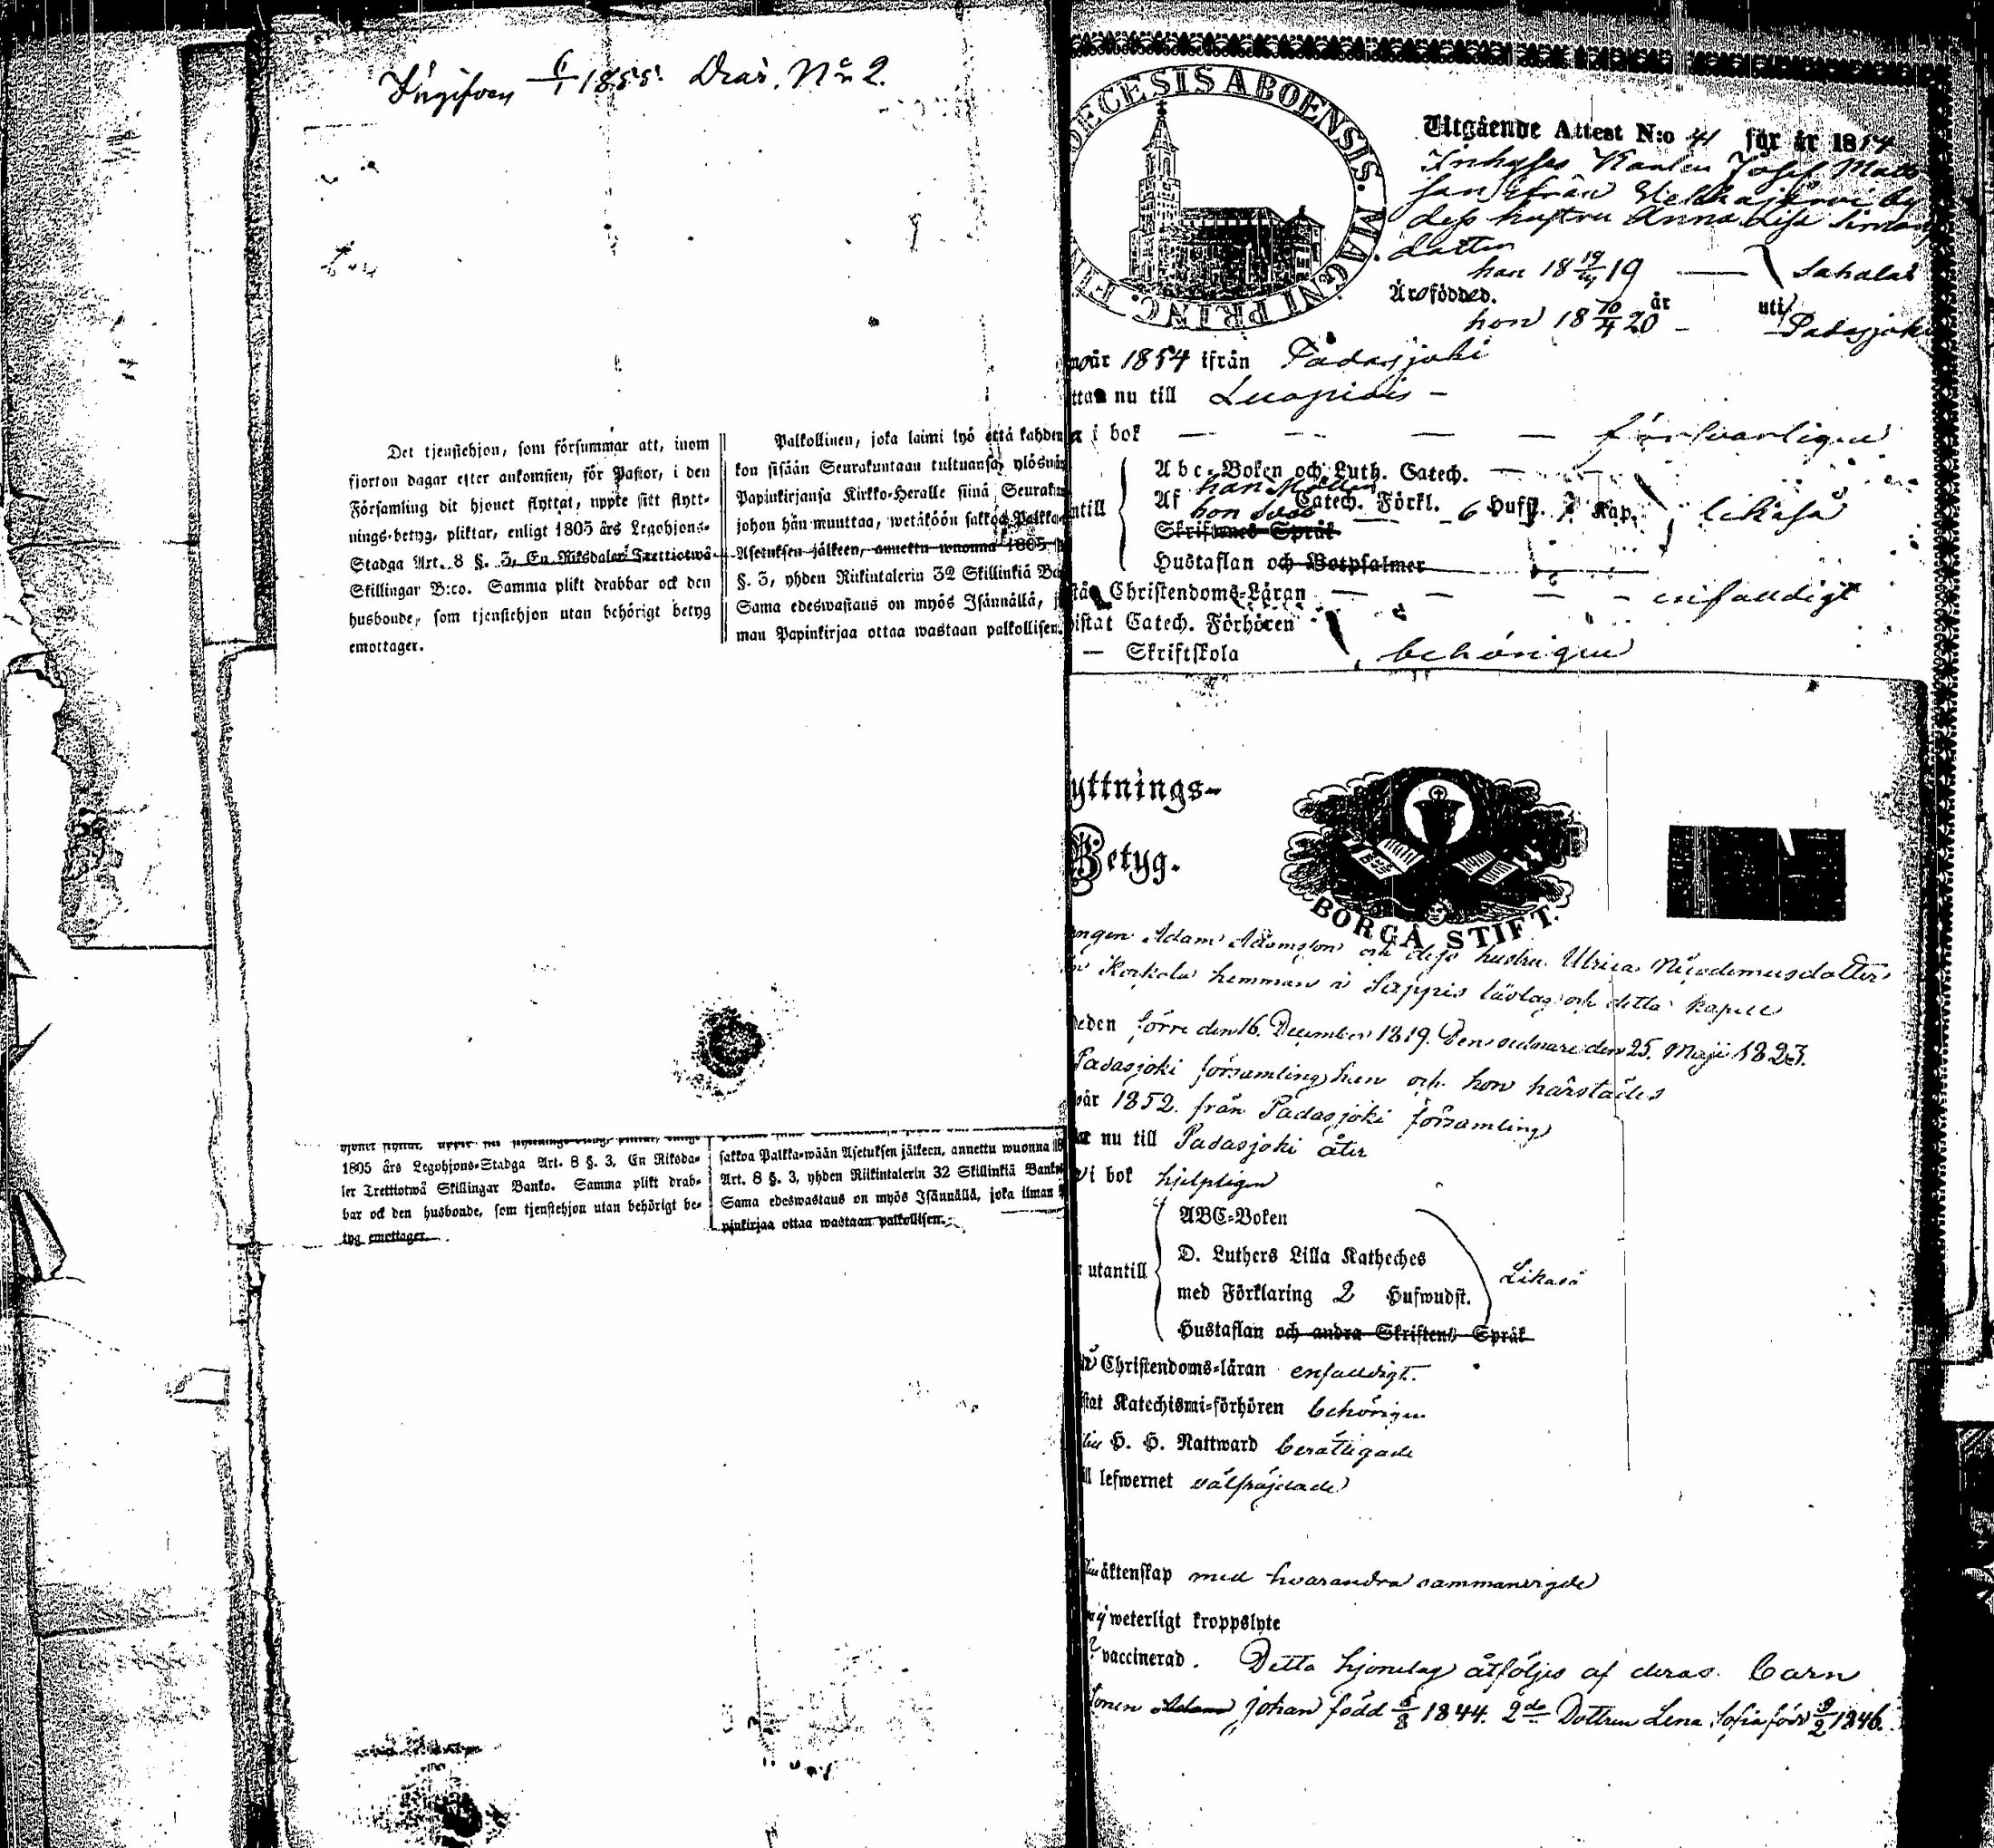 Ingifven 6/1 1855. Diar. No 2.
Det tjenstehjon, som försummar att, inom
fjorton dagar efter ankomsten, för Pastor, i den
Församling dit hjonet flyttat, uppte sitt flytt-
nings-betyg, pliktar, enligt 1805 års Legohjons-
Stadga Art. 8 §. 3, En Riksdaler Trettiotwå
Skillingar B:co. Samma plikt drabbar ock den
husbonde, som tjenstehjon utan behörigt betyg
emottager.
Palkollinen, joka laimi lyö että kahden
kon sisään Seurakuntaan tultuansa, ylösnä
Papinkirjansa Kirkko-Heralle siinä Seuraku
johon hän muuttaa, wetäköön sakkoa Palkka-
Asetuksen jälkeen, annettu wuonna 1805
§. 3, yhden Riikintalerin 32 Skillinkiä Ba
Sama edeswastaus on myös Isännällä, j
man Papinkirjaa ottaa wastaan palkollisen.
hjonet flyttat, uppte sitt flyttnings-betyg, pliktar, enligt
1805 års Legohjons-Stadga Art. 8 §. 3, En Riksda-
ler Trettiotwå Skillingar Banko. Samma plikt drab-
bar ock den husbonde, som tjenstehjon utan behörigt be-
tyg emottager.
sakkoa Palkka-wään Asetuksen jälkeen, annettu wuonna 18
Art. 8 §. 3, yhden Riikintalerin 32 Skillinkiä Banko
Sama edeswastaus on myös Isännällä, joka ilman
pinkirjaa ottaa wastaan palkollisen.
DECESIS ABOENSIS. MAGNI PRINC. FIN
Utgående Attest N:o 41 för år 1854
Inhyses Karlen Josef Matts
son ifrån Vehkajärvi by
dess hustru Anna Lisa Simons
dotter
han 18 19/4 19 — Sahalax
Äro födde. år uti
hon 18 10/4 20 — Padasjoki
år 1854 ifrån Padasjoki
ttar nu till Luopiois —
i bok — — — — försvarligen
Abc-Boken och Luth. Catech. —
Af han Möllers Catech. Förkl. 6 Hufst. 7 Kap. likaså
hon Svebs
ntill
Skriftenes Språk
Hustaflan och Botpsalmer
stå Christendoms-Läran — — — — enfaldigt
istat Catech. Förhören
— Skriftskola behörigen
yttnings-
Betyg.
BORGÅ STIFT.
ngen Adam Adamsson och dess hustru Ulrica Nicodemusdotter
Korkola hemman i Sappis lävlag och detta kapell
deden förre den 16. December 1819. Den sednare den 25. Maji 1823.
Padasjoki församling han och hon härstädes
år 1852. från Padasjoki församling
nu till Padasjoki åter
i bok hjelpligen
ABC-Boken
D. Luthers Lilla Katheches
utantill
med Förklaring 2 Hufwudst. Likaså
Hustaflan och andra Skriftens Språk
Christendoms-läran enfalldigt.
stat Katechismi-förhören behörigen
H. H. Nattward berättigade
ill lefwernet välfräjdade
äktenskap med hvarandra sammanvigde
ej weterligt kroppslyte
vaccinerad. Detta hjonelag åtföljes af deras Barn
Sonen Adam Johan född 5/8 1844. 2de Dottren Lena Sofia född 9/2 1846.